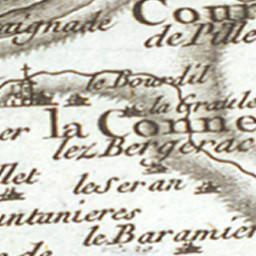 aignade
Cour
de Pille
le Bourdil
la Graule
er
la Conne
lez Bergerac
llet
le seran
untanieres
le Baramier
de